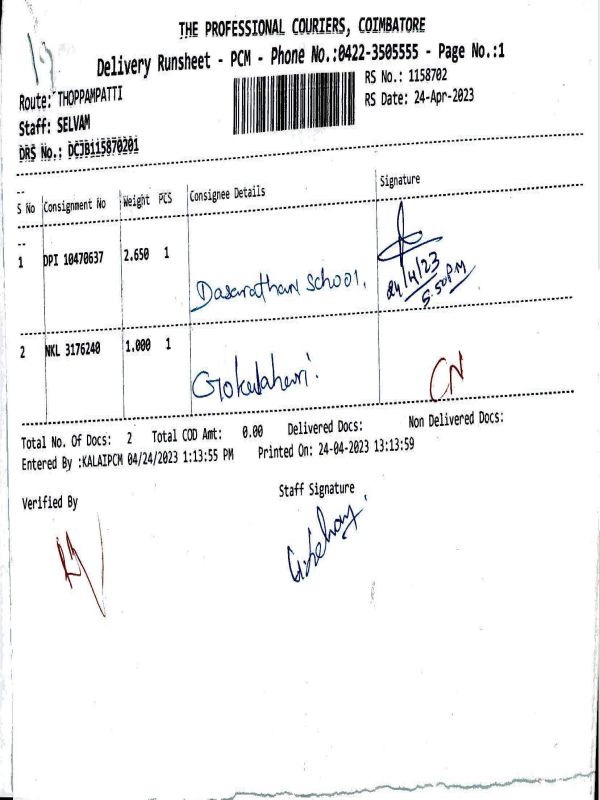 THE PROFESSIONAL COURIERS, COIMBATORE
Delivery Runsheet - PCM - Phone No.:0422-3505555 - Page No.:1
Route: THOPPAMPATTI
RS No.: 1158702
Staff: SELVAM
RS Date: 24-Apr-2023
DRS No.: DCJB115870201
S No Consignment No Weight PCS Consignee Details Signature
1 DPI 10470637 2.650 1
Dasarathan School.
24/4/23
5:50PM
2 NKL 3176240 1.000 1
CN
Total No. Of Docs: 2 Total COD Amt: 0.00 Delivered Docs: Non Delivered Docs:
Entered By :KALAIPCM 04/24/2023 1:13:55 PM Printed On: 24-04-2023 13:13:59
Verified By Staff Signature